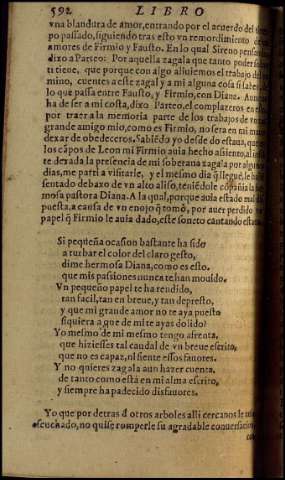 592 LIBRO
vna blandura de amor, entrando por el acuerdo del
po passado, siguiendo tras esto vn remordimiento
amores de Firmio y Fausto. En lo qual Sireno pensan
dixo a Parteo: Por aquella zagala que tanto poder
ti tiene, que porque con algo aliuiemos el trabajo del
mino, cuentes a este zagal y a mi alguna cosa si la
lo que passa entre Fausto, y Firmio, con Diana.
ha de ser a mi costa, dixo Parteo, el complazeros en
por traer a la memoria parte de los trabajos de
grande amigo mio, como es Firmio, no sera en mi
dexar de obedeceros. Sabiẽdo yo desde do estaua, que
los cãpos de Leon mi Firmio auia hecho asiento, al
te dexada la presencia de mi soberana zagala por algunos
dias, me parti a visitarle, y el mesmo dia q̃ llegué, le halle
sentado debaxo de vn alto aliso, teniẽdole cõpañia la
mosa pastora Diana. A la qual, porque aula estado mal
puesta, a causa de vn enojo q̃ tomó, por auer perdido
papel q̃ Firmio le auia dado, este soneto cantando estaua.
Si pequeña ocasion bastante ha sido
a turbar el color del claro gesto,
dime hermosa Diana, como es esto.
que mis passiones nunca te han mouido.
Vn pequeño papel te ha rendido,
tan facil, tan en breue, y tan depresto,
y que mi grande amor no te aya puesto
siquiera a que de mi te ayas dolido?
Yo mesmo de mi mesmo tengo afrenta,
que hiziesses tal caudal de vn breue escrito,
que no es capaz, ni siente essos fauores.
Y no quieres zagala aun hazer cuenta,
de tanto como está en mi alma escrito,
y siempre ha padecido disfauores.
Yo que por detras d̃ otros arboles alli cercanos le
escuchado, no quise romperle su agradable conuersacion